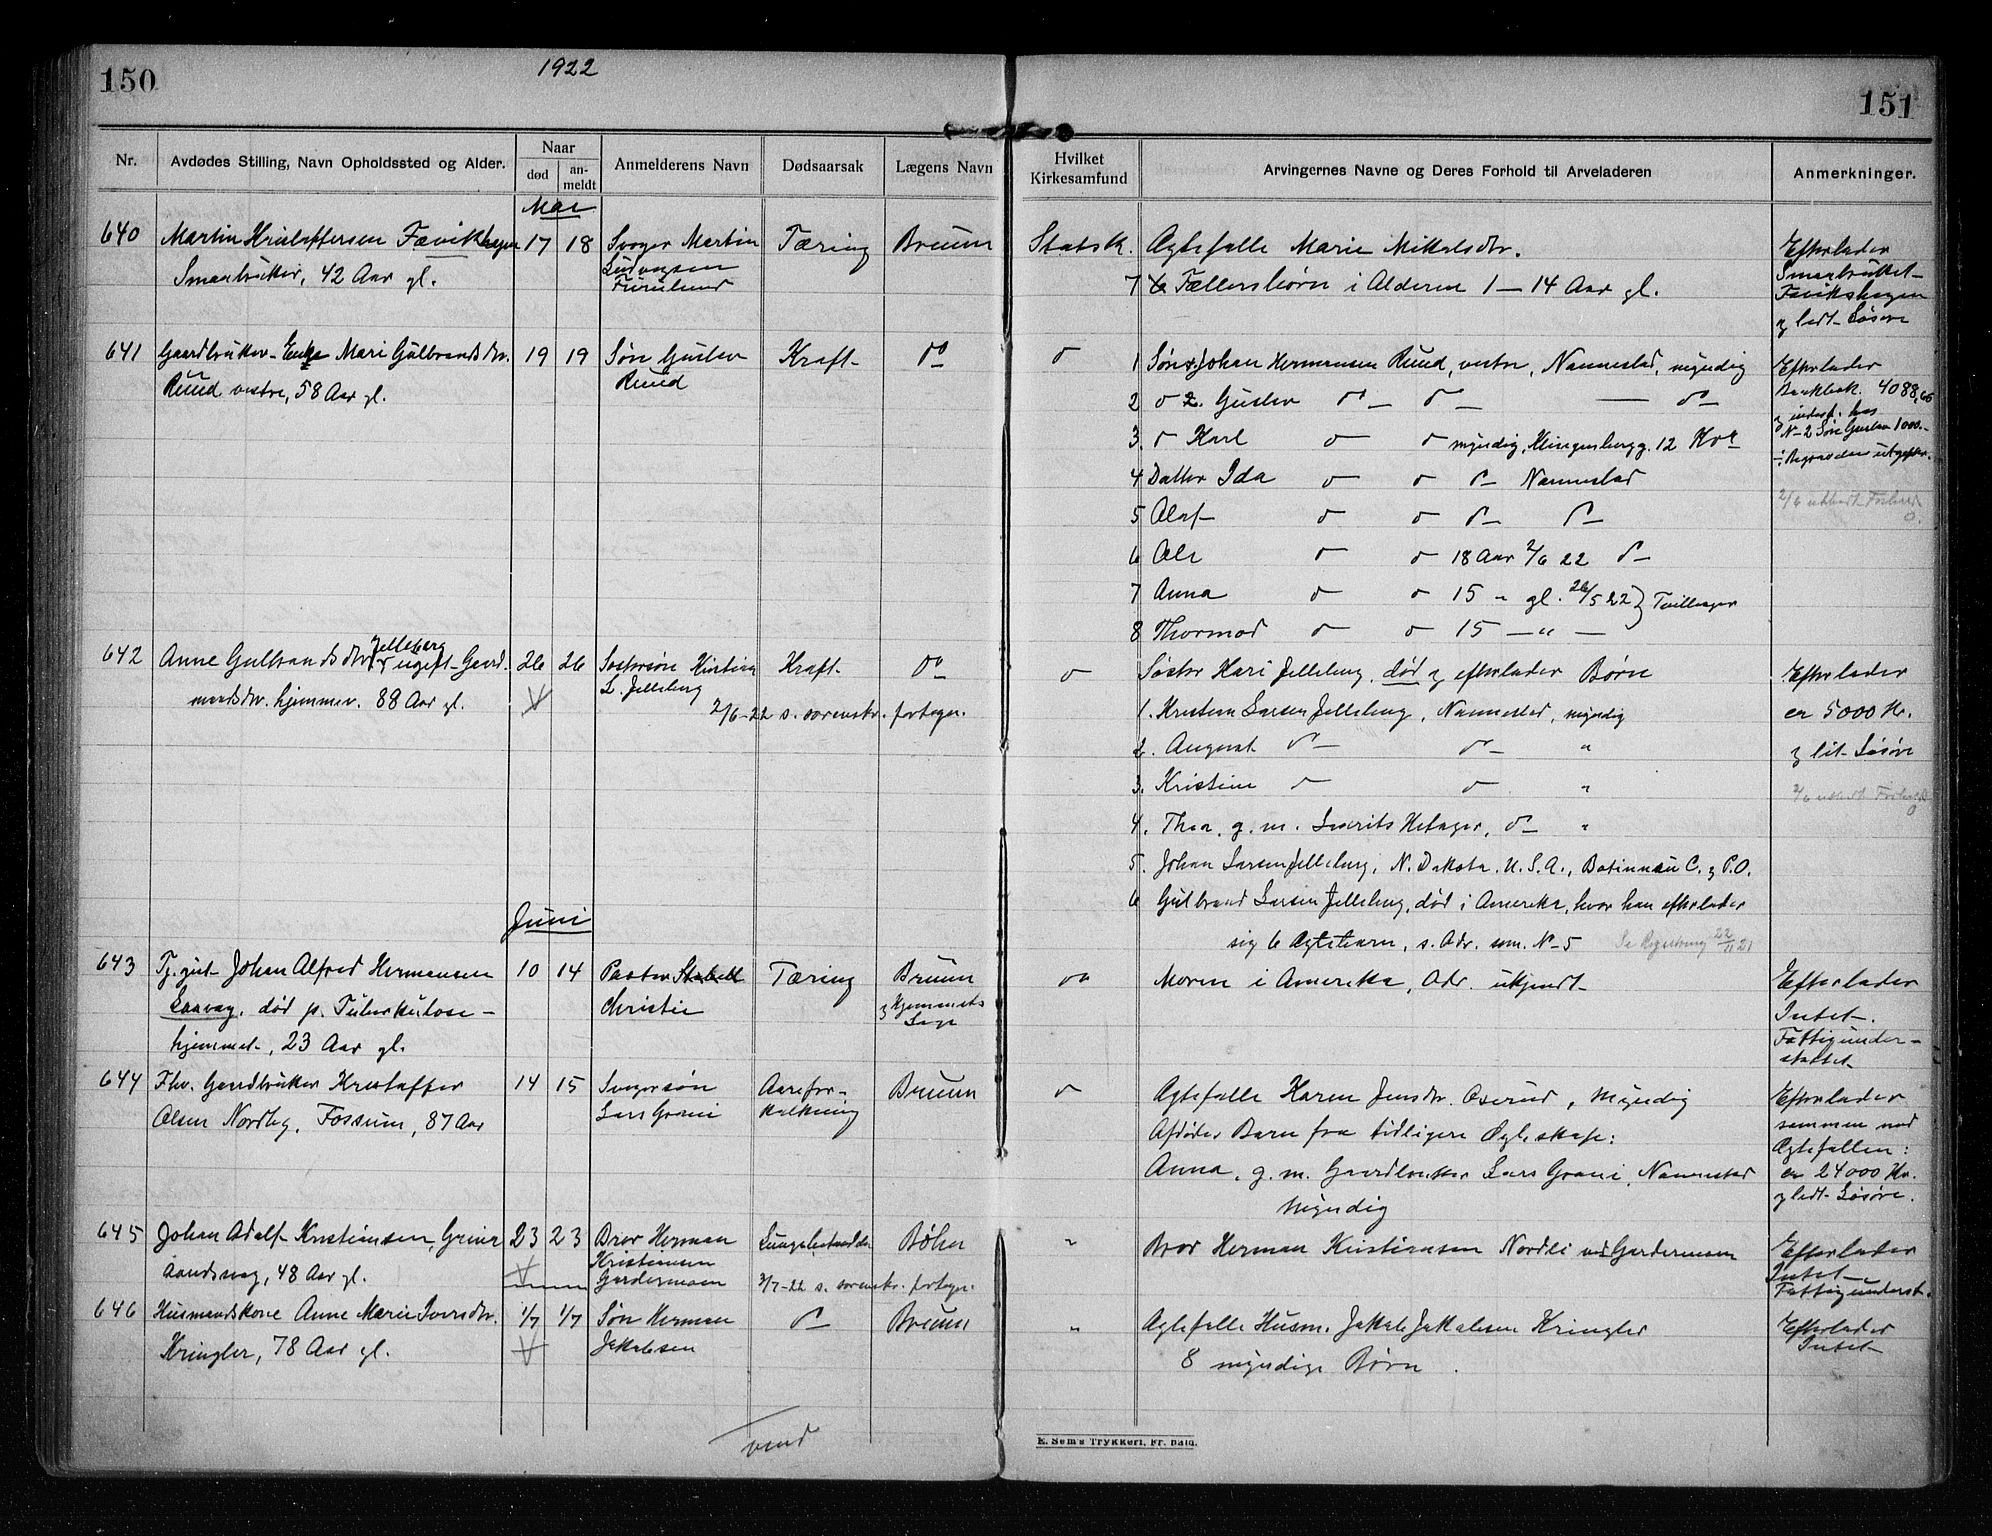 150
1922
151
Nr.
Avdødes Stilling, Navn Opholdssted og Alder.
Naar
død
an-
meldt
Anmelderens Navn
Dødsaarsak
Lægens Navn
Hvilket
Kirkesamfund
Arvingernes Navne og Deres Forhold til Arveladeren
Anmerkninger.
Mai
640 Martin Kristoffersen Fævikhagen 17 18 Svoger Martin Tæring Bruun Statsk. Ægtefælle Marie Mikalsdtr. Efterlader
Smaabruker, 42 Aar gl. Ludvigsen Furulund 7 Fællersbørn i Alderen 1 — 14 Aar gl. Smaabruket
Fævikhagen
og lidt Løsøre
641 Gaardbruker-Enke Mari Gulbrandsdtr. 19 19 Søn Gustav Kraft do 1 Søn Johan Hermansen Ruud, vestre, Nannestad, myndig Efterlader
Ruud vestre, 58 Aar gl. Ruud Bankbok. 4088,66
2 do 2. Gustav do — do — — do — og indest. hos
N-2 Søn Gustav 1000.-
3. do Karl do do myndig, Klingenberg g. 12 Kr.a ÷ Begravelsesutgifter.
4 Datter Ida do do do Nannestad
2/6 utstedt Forhold
0.
5 Olaf do do do do
6 Ole do do 18 Aar 2/6 22 do
7 Anna do do 15 " gl. 26/5 22 } Tvillinger
8 Thormod do do 15 — " —
642 Anne Gulbrandsdtr. Jelleberg ugift Gaard- 26 26 Søstersøn Kristian Kraft do do Søster Kari Jelleberg, død og efterlader Børn Efterlader
mandsdtr. hjemmev. 88 Aar gl. L. Jelleberg
2/6-22 s. sorenskr. fortegn. 1. Kristian Larsen Jelleberg, Nannestad, myndig ca 5000 Kr.
2. August do — do — " og lit Løsøre
3. Kristine do do " 2/6 utstedt Forhold
0
4. Thea, g. m. Lavrits Hetager, do — "
5. Johan Larsen Jelleberg, N. Dakota. U.S.A., Botinnau C. og P.O.
6 Gulbrand Larsen Jelleberg, død i Amerika, hvor han efterlader
sig 6 Ægtebarn, s. Adr. som N-5 Se Registrering 22/11 21
Juni
643 Tj.gut Johan Alfred Hermansen 10 14 Pastor Stabell Tæring Bruun do Moren i Amerika, Adr. ukjendt Efterlader
Laavæg, død p. Tuberkulose- Christie og Hjemmets Intet.
hjemmet, 23 Aar gl. Læge Fattigunder-
støttet
644 Fhv. Gaardbruker Kristoffer 14 15 Svigersøn Aarefor- Bruun do Ægtefælle Karen Jensdtr. Aaserud, myndig Efterlader
Olsen Nordby, Fossum, 87 Aar Lars Grani kalkning Afdødes Barn fra tidligere Ægteskap: sammen med
Ægtefællen:
Anna, g. m. Gaardbruker Lars Grani, Nannestad ca 24000 Kr.
myndig og lidt Løsøre.
645 Johan Adolf Kristiansen, Griner 23 23 Bror Herman Lungebetændelse Bøhn " Bror Herman Kristiansen Nordli ved Gardermoen Efterlader
Aandsvag, 48 Aar gl. Kristiansen Intet
Gardermoen 3/7-22 s. sorenskr. fortegn. Fattigunderst.
646 Husmandskone Anne Marie Iversdtr. 1/7 1/7 Søn Herman do Bruun " Ægtefælle Husm. Jakob Jakobsen Kringler Efterlader
Kringler, 78 Aar gl. Jakobsen 8 myndige Børn. Intet
vend
E. Sem's Trykkeri, Fr.hald.